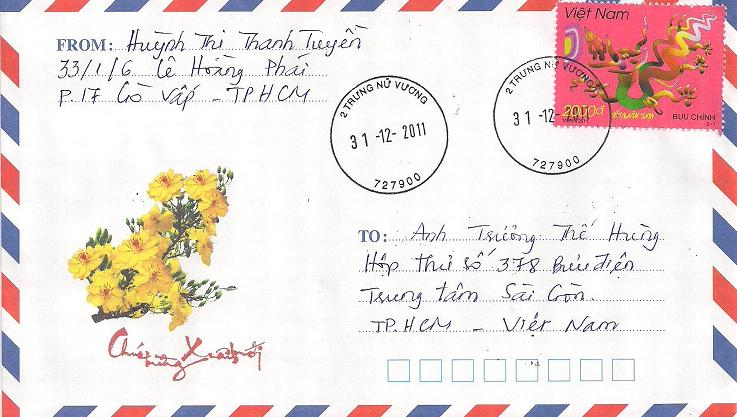 FROM: Huỳnh Thị Thanh Tuyền
33/1/6 Lê Hoàng Phái
P.17 Gò Vấp - TP HCM
2 TRƯNG NỮ VƯƠNG
31-12-2011
727900
2 TRƯNG NỮ VƯƠNG
31-12-2011
727900
Việt Nam
2000đ
BƯU CHÍNH
2-1
TO: Anh Trương Thế Hùng
Hộp thư số 378 Bưu điện
Trung tâm Sài Gòn.
TP.HCM - Việt Nam
Chúc mừng Xuân mới